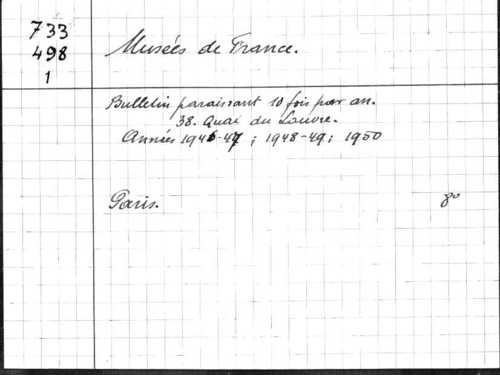 733
498
1
Musées de France.
Bulletin paraissant 10 fois par an.
38. Quai du Louvre.
Années 1946-47 ; 1948-49 ; 1950
Paris. 8º